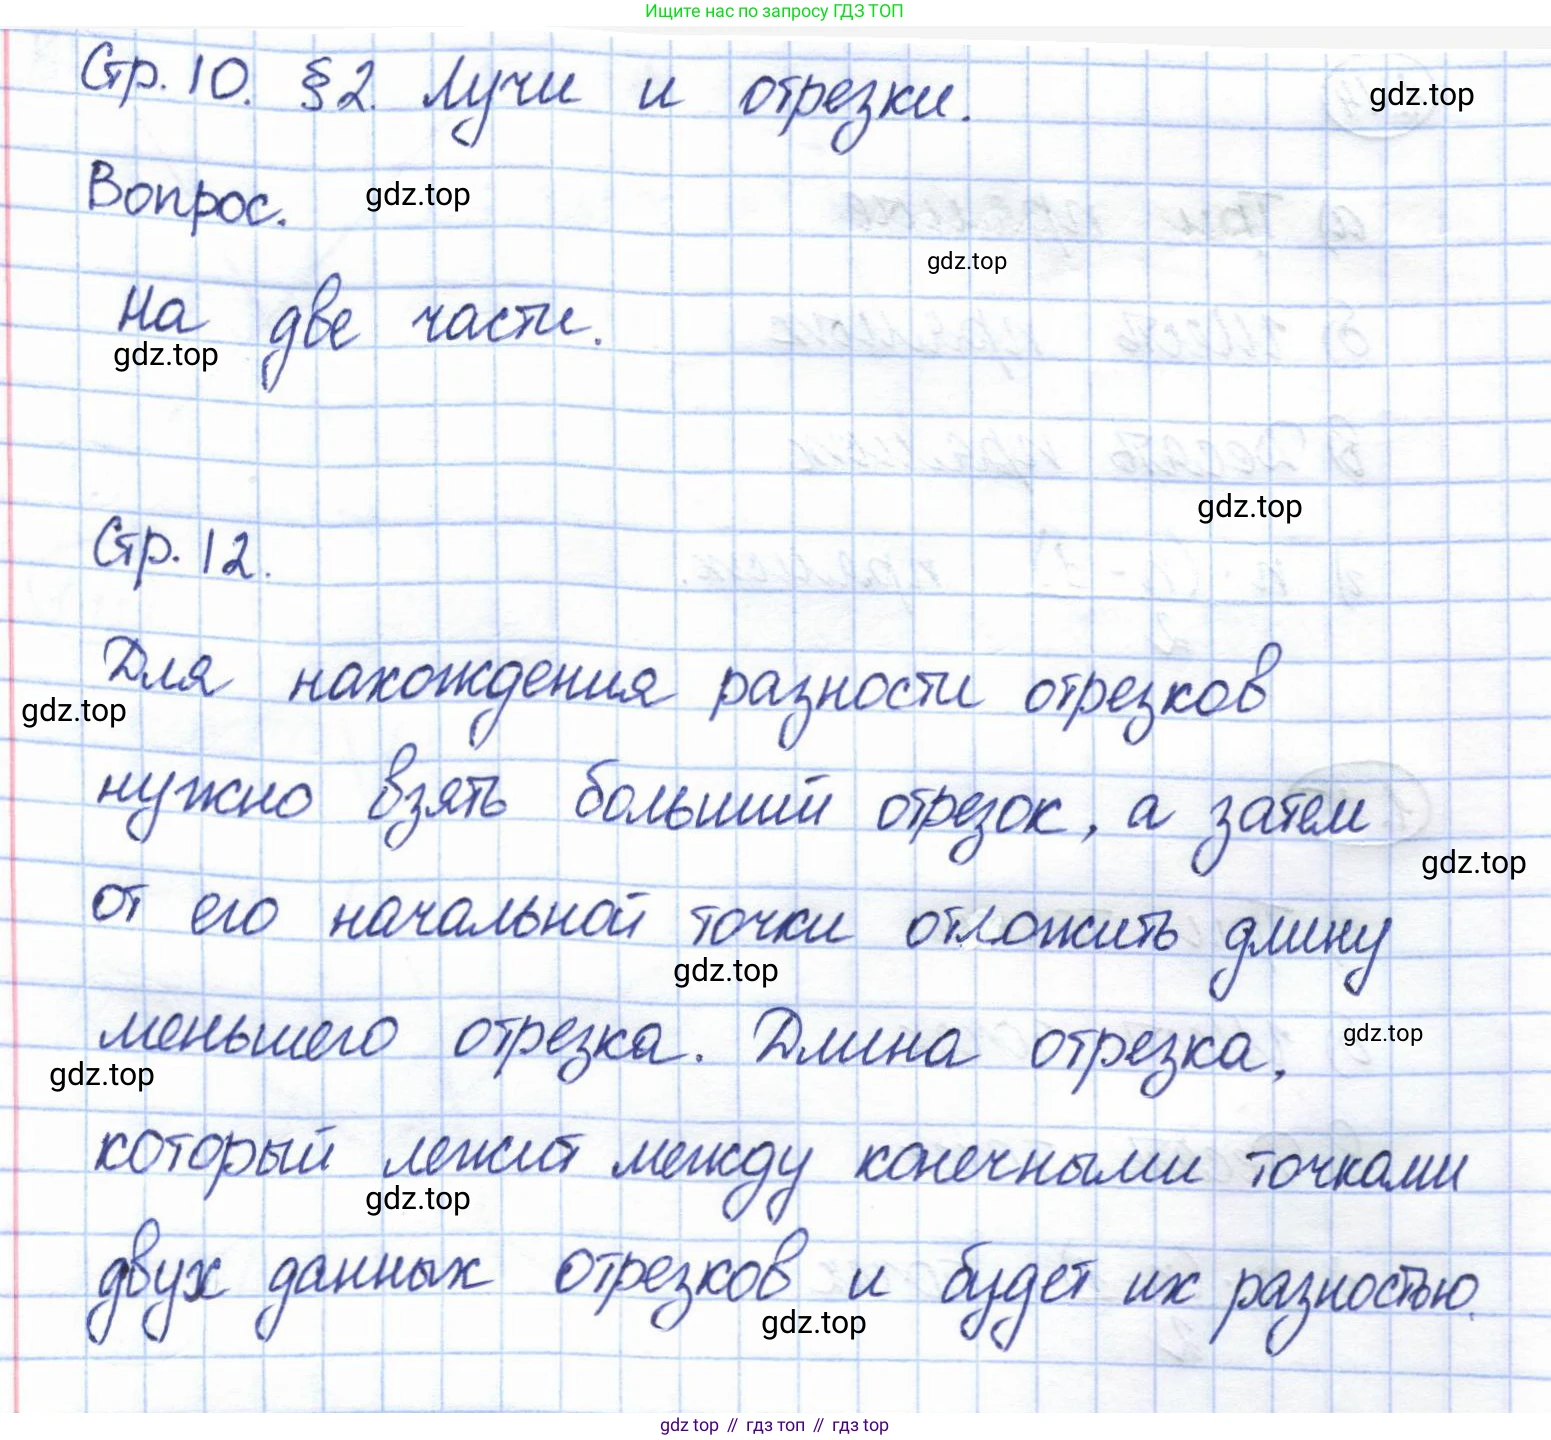 Ищите нас по запросу ГДЗ ТОП
Стр. 10. §2. Лучи и отрезки.
gdz.top
Вопрос.
gdz.top
gdz.top
На две части.
gdz.top
gdz.top
Стр. 12.
Для нахождения разности отрезков
gdz.top
нужно взять больший отрезок, а затем
gdz.top
от его начальной точки отложить длину
gdz.top
меньшего отрезка. Длина отрезка,
gdz.top
gdz.top
который лежит между конечными точками
gdz.top
двух данных отрезков и будет их разностью.
gdz.top
gdz top // гдз топ // гдз top